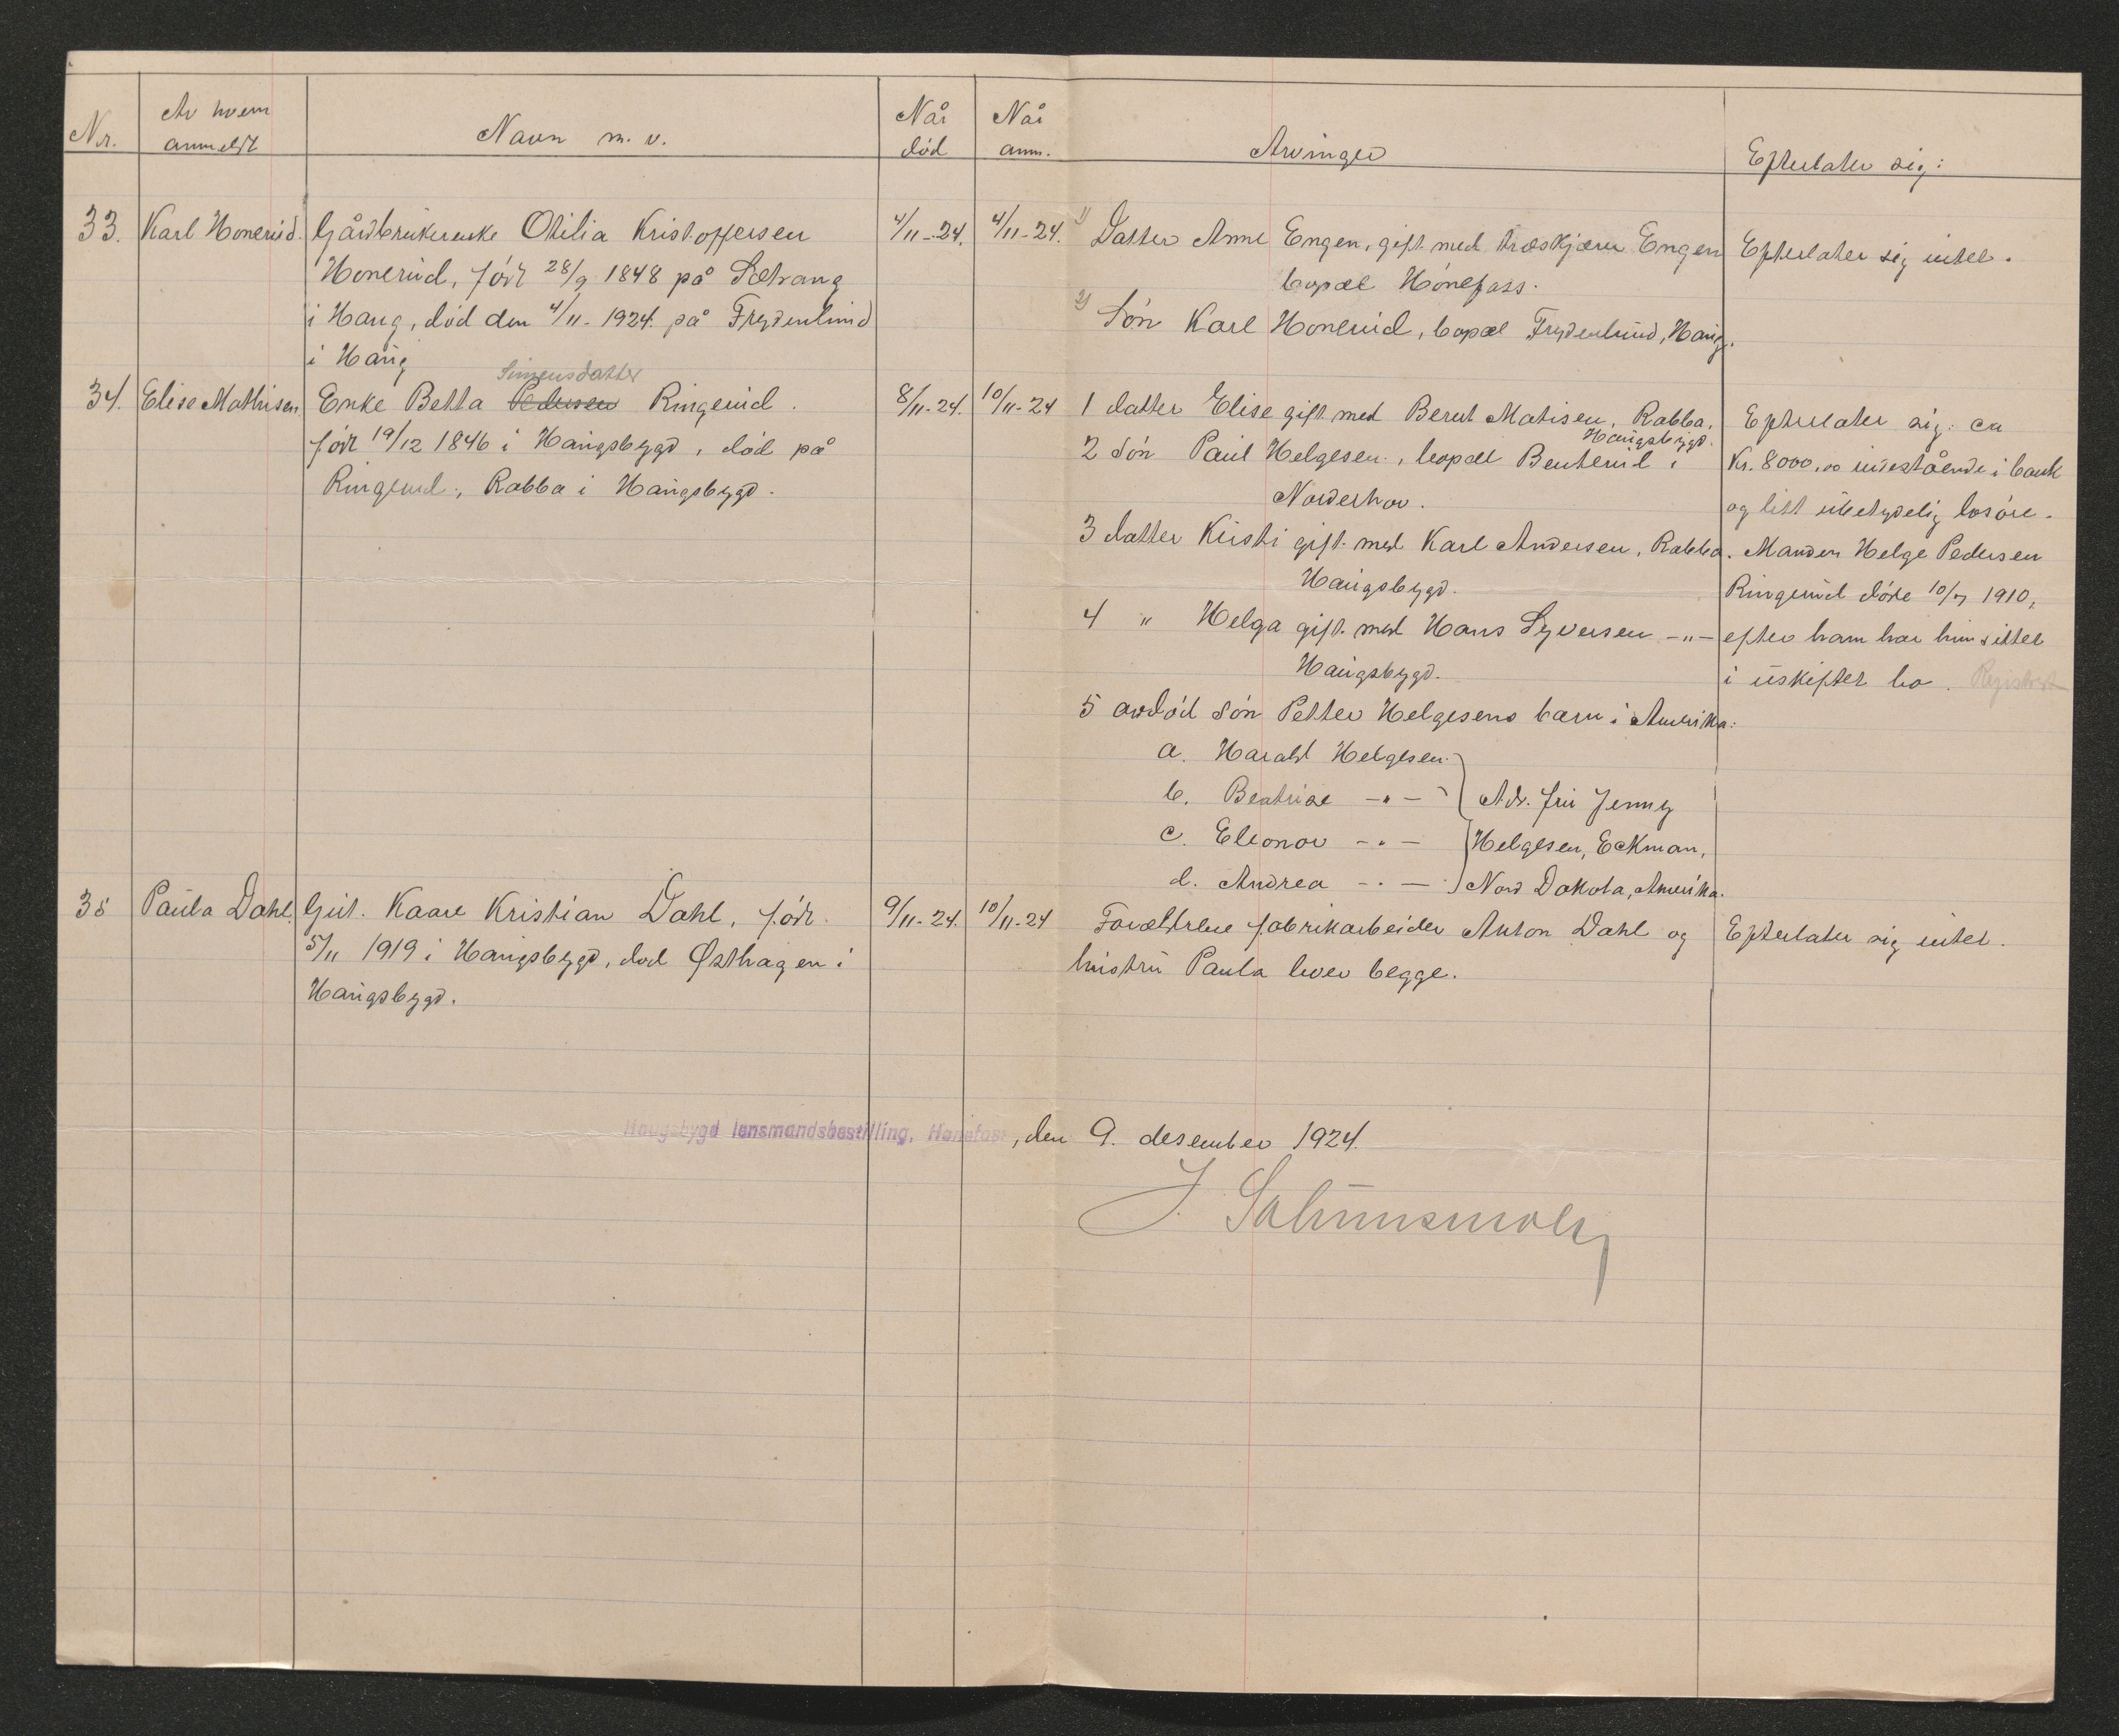 Nr.
Av hvem anmeldt
Navn m. v.
Når død
Når anm.
Arvinger
Efterlater sig:
33.
Karl Honerud.
Gårdbrukerenke Otilia Kristoffersen
Honerud, født 28/9 1848 på Sætrang
i Haug, død den 4/11-1924 på Frydenlund
i Haug
4/11-24.
4/11-24.
1) Datter Anne Engen, gift med træskjærer Engen
bopæl Hönefoss.
2) Sön Karl Honerud, bopæl Frydenlund, Haug.
Efterlater sig intet.
34.
Elise Mathisen
Simensdatter
Enke Betta Pedersen Ringerud.
født 19/12 1846 i Haugsbygd, död på
Ringerud, Rabba i Haugsbygd.
8/11-24.
10/11-24
1 datter Elise gift med Bernt Matisen, Rabba,
Haugsbygd.
2 Sön Paul Helgesen, bopæl Benterud i
Norderhov.
3 datter Kirsti gift med Karl Andersen, Rabba.
Haugsbygd.
4 " Helga gift med Hans Syversen -"-
Haugsbygd.
5 avdöd sön Petter Helgesens barn i Amerika:
a. Harald Helgesen
b. Beatrise -"- Adr. fru Jenny
c. Eleonor -"- Helgesen, Eckman,
d. Andrea -"- Nord Dakota, Amerika.
Efterlater sig: ca
Kr. 8000,00 indestående i bank
og litt ubetydelig lösöre.
Manden Helge Pedersen
Ringerud döde 10/7 1910,
efter ham har hun sittet
i uskiftet bo. Registrert
35
Paula Dahl.
Gut. Kaare Kristian Dahl, födt
5/11 1919 i Haugsbygd, död Østhagen i
Haugsbygd.
9/11-24.
10/11-24
Forældrene fabrikarbeider Anton Dahl og
hustru Paula lever begge.
Efterlater sig intet.
Haugsbygd lensmandsbestilling, Hønefoss, den 9. desember 1924.